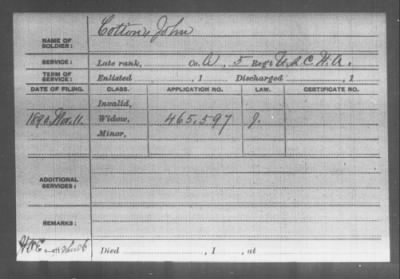 NAME OF SOLDIER: Cotton, John
SERVICE: Late rank, Co. A, 5 Reg't U.S.C.H.A.
TERM OF SERVICE: Enlisted , 1 Discharged , 1
DATE OF FILING. CLASS. APPLICATION NO. LAW. CERTIFICATE NO.
Invalid,
1890 Nov. 11. Widow, 465,597 J.
Minor,
ADDITIONAL SERVICES:
REMARKS:
Died , 1 , at